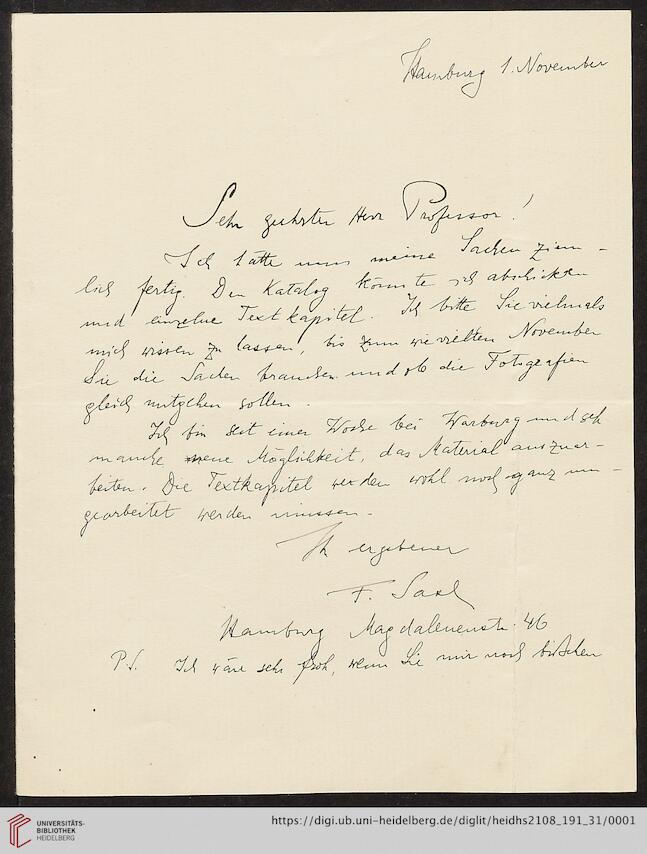 Hamburg 1. November
Sehr geehrter Herr Professor!
Ich hätte nun meine Sachen ziem-
lich fertig. Den Katalog könnte ich abschicken
und einzelne Textkapitel. Ich bitte Sie vielmals
mich wissen zu lassen, bis zum wievielten November
Sie die Sachen brauchen und ob die Fotografien
gleich mitgehen sollen.
Ich bin seit einer Woche bei Warburg und seh
manche neue Möglichkeit, das Material auszuar-
beiten. Die Textkapitel werden wohl noch ganz um-
gearbeitet werden müssen.
Ihr ergebener
F. Saxl
Hamburg Magdalenenstr. 46
P.S. Ich wäre sehr froh, wenn Sie mir noch bißchen
UNIVERSITÄTS-
BIBLIOTHEK
HEIDELBERG
https://digi.ub.uni-heidelberg.de/diglit/heidhs2108_191_31/0001